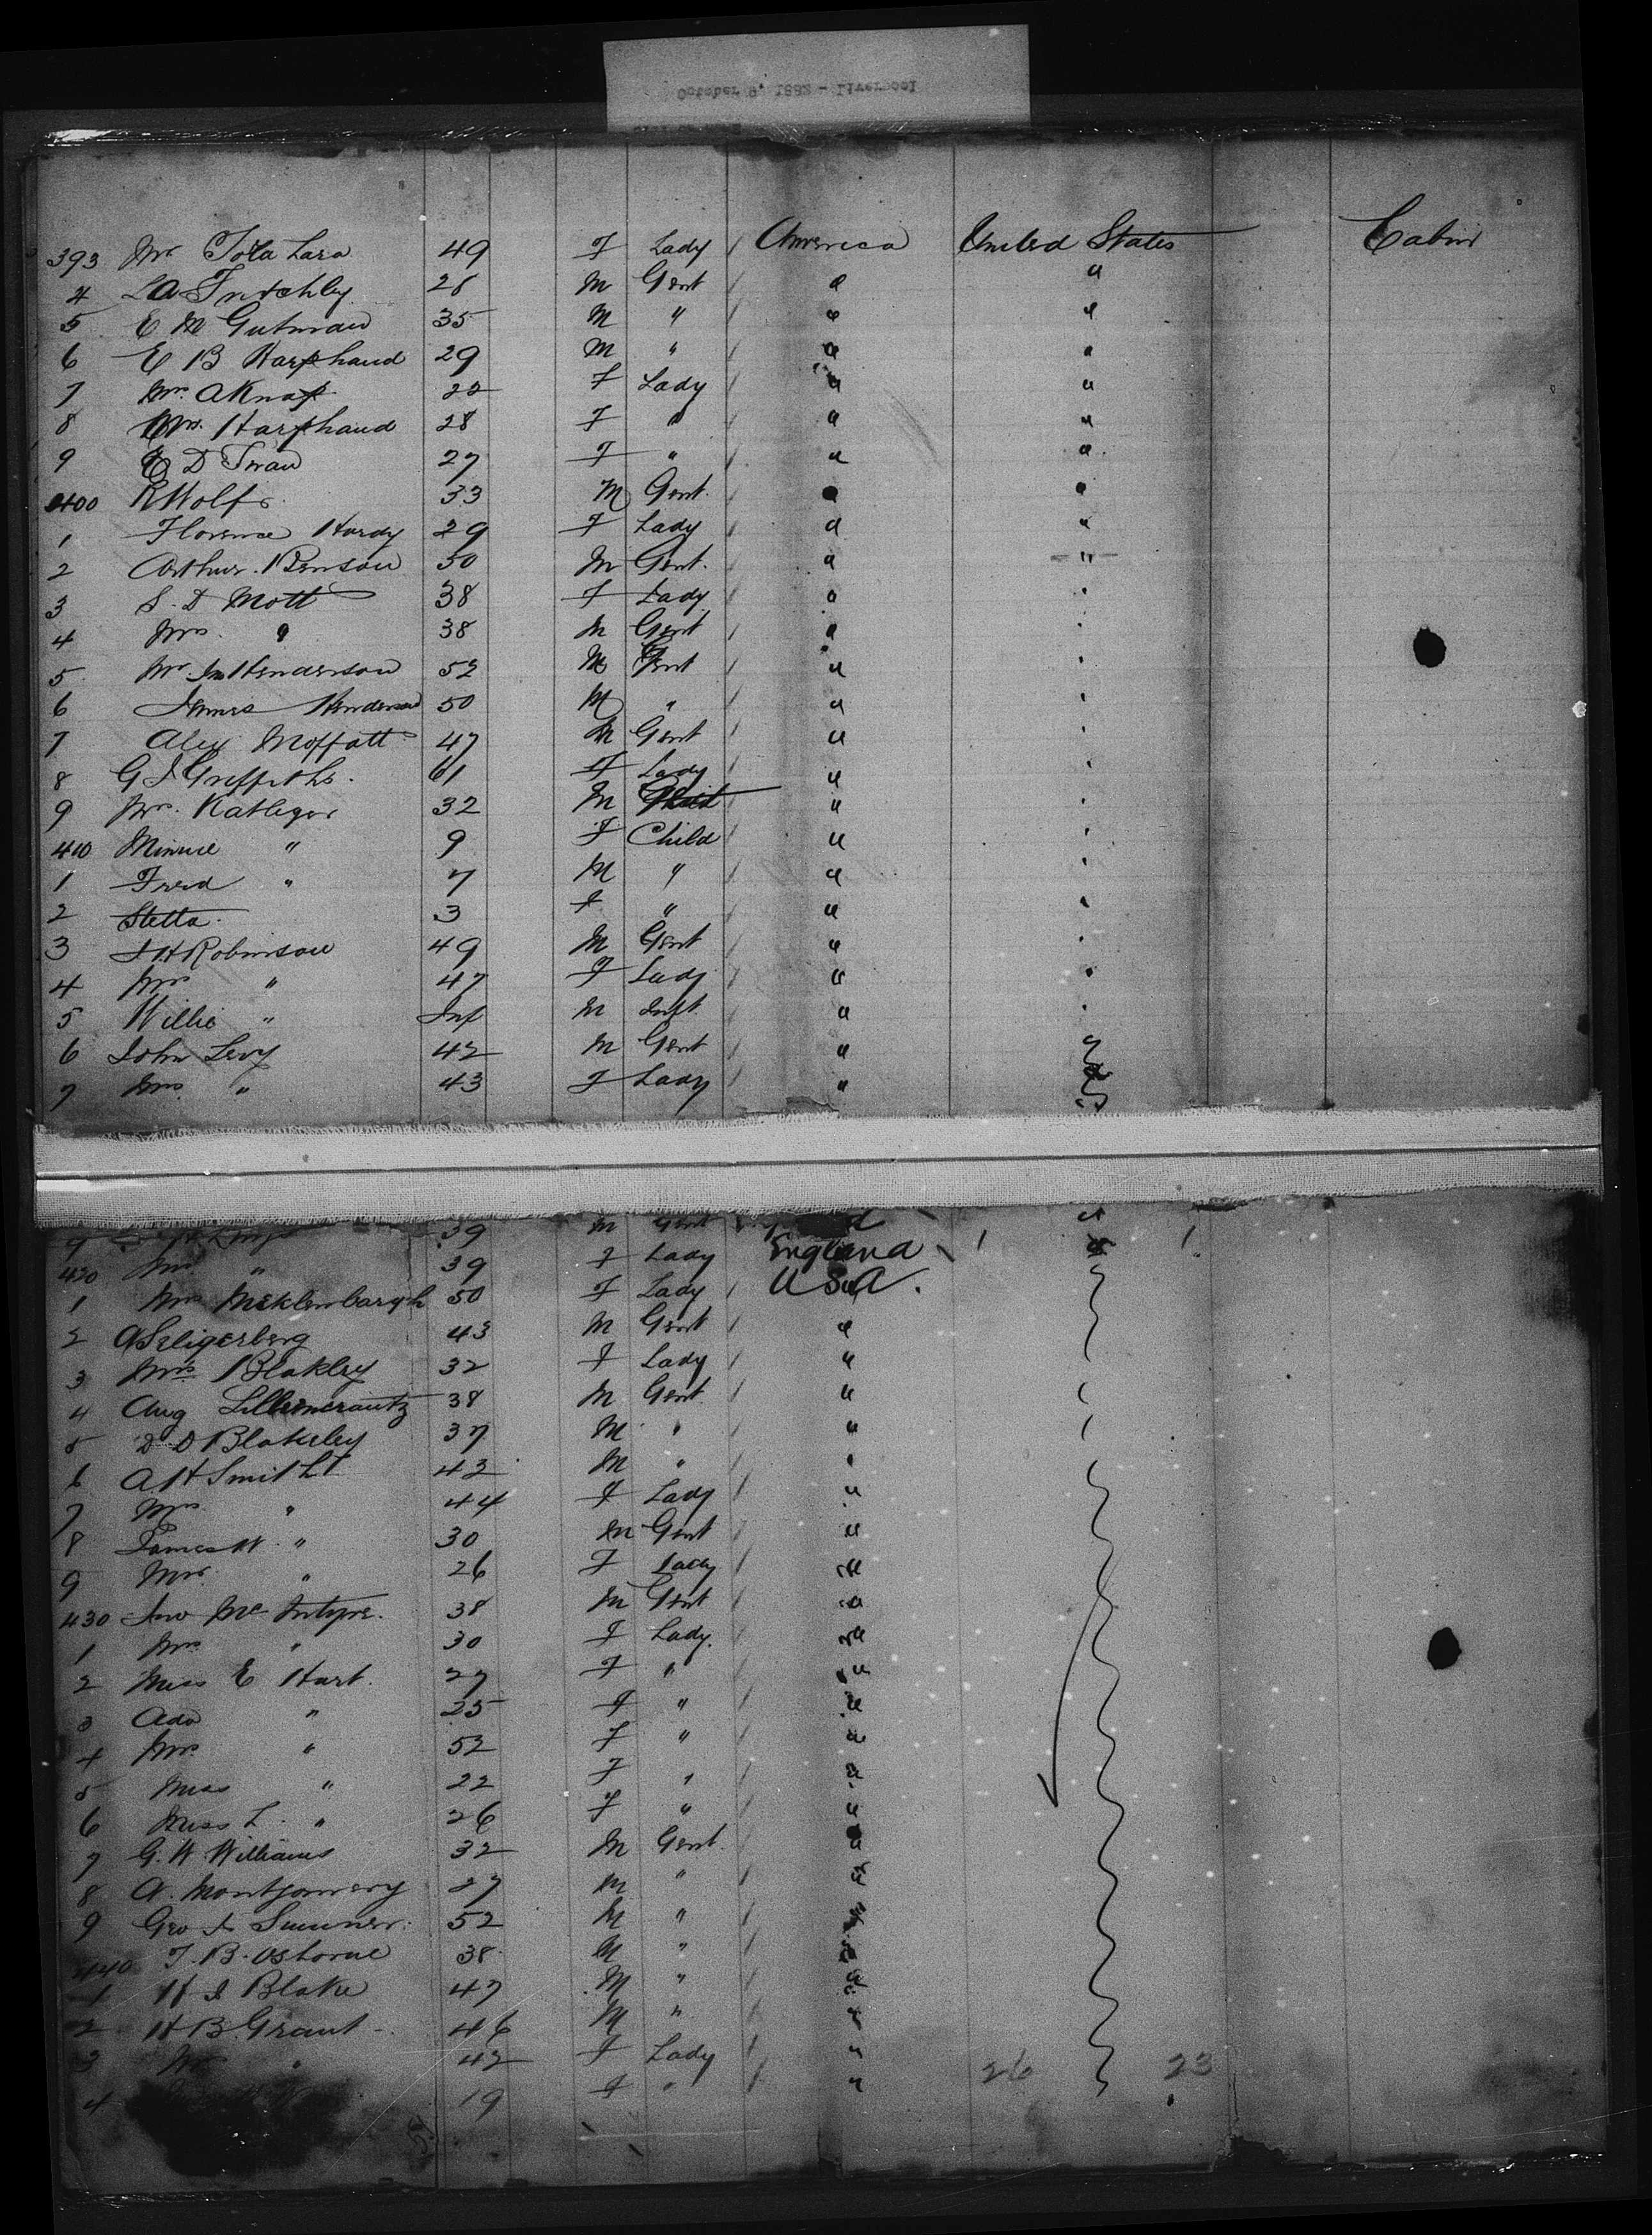 October 9, 1882 - Liverpool
393 Mrs Tola Lara 49 F Lady / America United States Cabin
4 LA Fritchley 28 M Gent " "
5 E M Gutman 35 M " / " "
6 E B Harphand 29 M " / " "
7 Mrs. A Knap 22 F Lady / " "
8 Mrs. Harphand 28 F " / " "
9 E D Swan 27 F " / " "
400 R Wolfe 33 M Gent. / " "
1 Florence Hardy 29 F Lady / " "
2 Arthur Benson 50 M Gent. / " "
3 S. D Mott 38 F Lady / " "
4 Mrs. " 38 M Gent / " "
5 Mr. Henderson 52 M Gent / " "
6 James Henderson 50 M " / " "
7 Alex Moffatt 47 M Gent / " "
8 G J Griffiths. 61 F Lady / " "
9 Mrs. 32 M / " "
410 Minnie " 9 F Child / " "
1 Fred " 7 M " / " "
2 Stella 3 F " / " "
3 J H Robinson 49 M Gent / " "
4 Mrs " 47 F Lady / " "
5 Willie " Inf M Inft / " "
6 John Levy 42 M Gent / " "
7 Mrs " 43 F Lady / "
9 39 M Gent
420 Mrs " 39 F Lady England 1 1
1 Mrs Mecklenbargh 50 F Lady / USA.
2 A Seligerberg 43 M Gent / "
3 Mrs Blakley 32 F Lady / "
4 Aug Lilliencrantz 38 M Gent. / "
5 D D Blakeley 37 M " / "
6 A H Smith 43 M " / "
7 Mrs " 44 F Lady / "
8 James W. " 30 M Gent / "
9 Mrs " 26 F Lady / "
430 Jno Mc Intyre. 38 M Gent / "
1 Mrs " 30 F Lady. / "
2 Miss E Hart. 27 F " / "
3 Ada " 25 F " / "
4 Mrs " 52 F " / "
5 Miss " 22 F " / "
6 Miss L. " 26 F " / "
7 G. W Williams 32 M Gent. / "
8 A. Montgomery 27 M " / "
9 Geo J Sumner. 52 M " / "
440 T. B. Osborne 38 M " / "
1 H J Blake 47 M " / "
2 H B Grant 46 M " / "
3 Mrs " 42 F Lady / " 26 23
4 19 F " / "